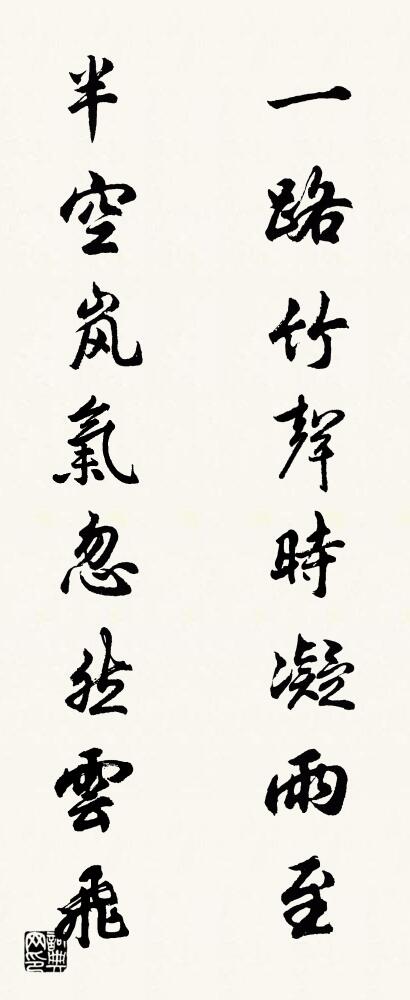 一路竹聲時凝雨至
半空岚氣忽然雲飛